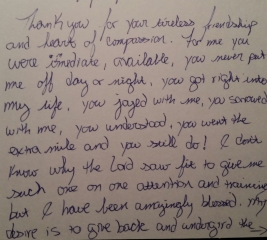 Thank you for your tireless friendship
and hearts of compassion. For me you
were imediate, available, you never put
me off day or night, you got right into
my life, you joyed with me, you sorrowed
with me, you understood, you went the
extra mile and you still do! I don't
know why the Lord saw fit to give me
such one on one attention and training
but I have been amazingly blessed. My
desire is to give back and undergird the →